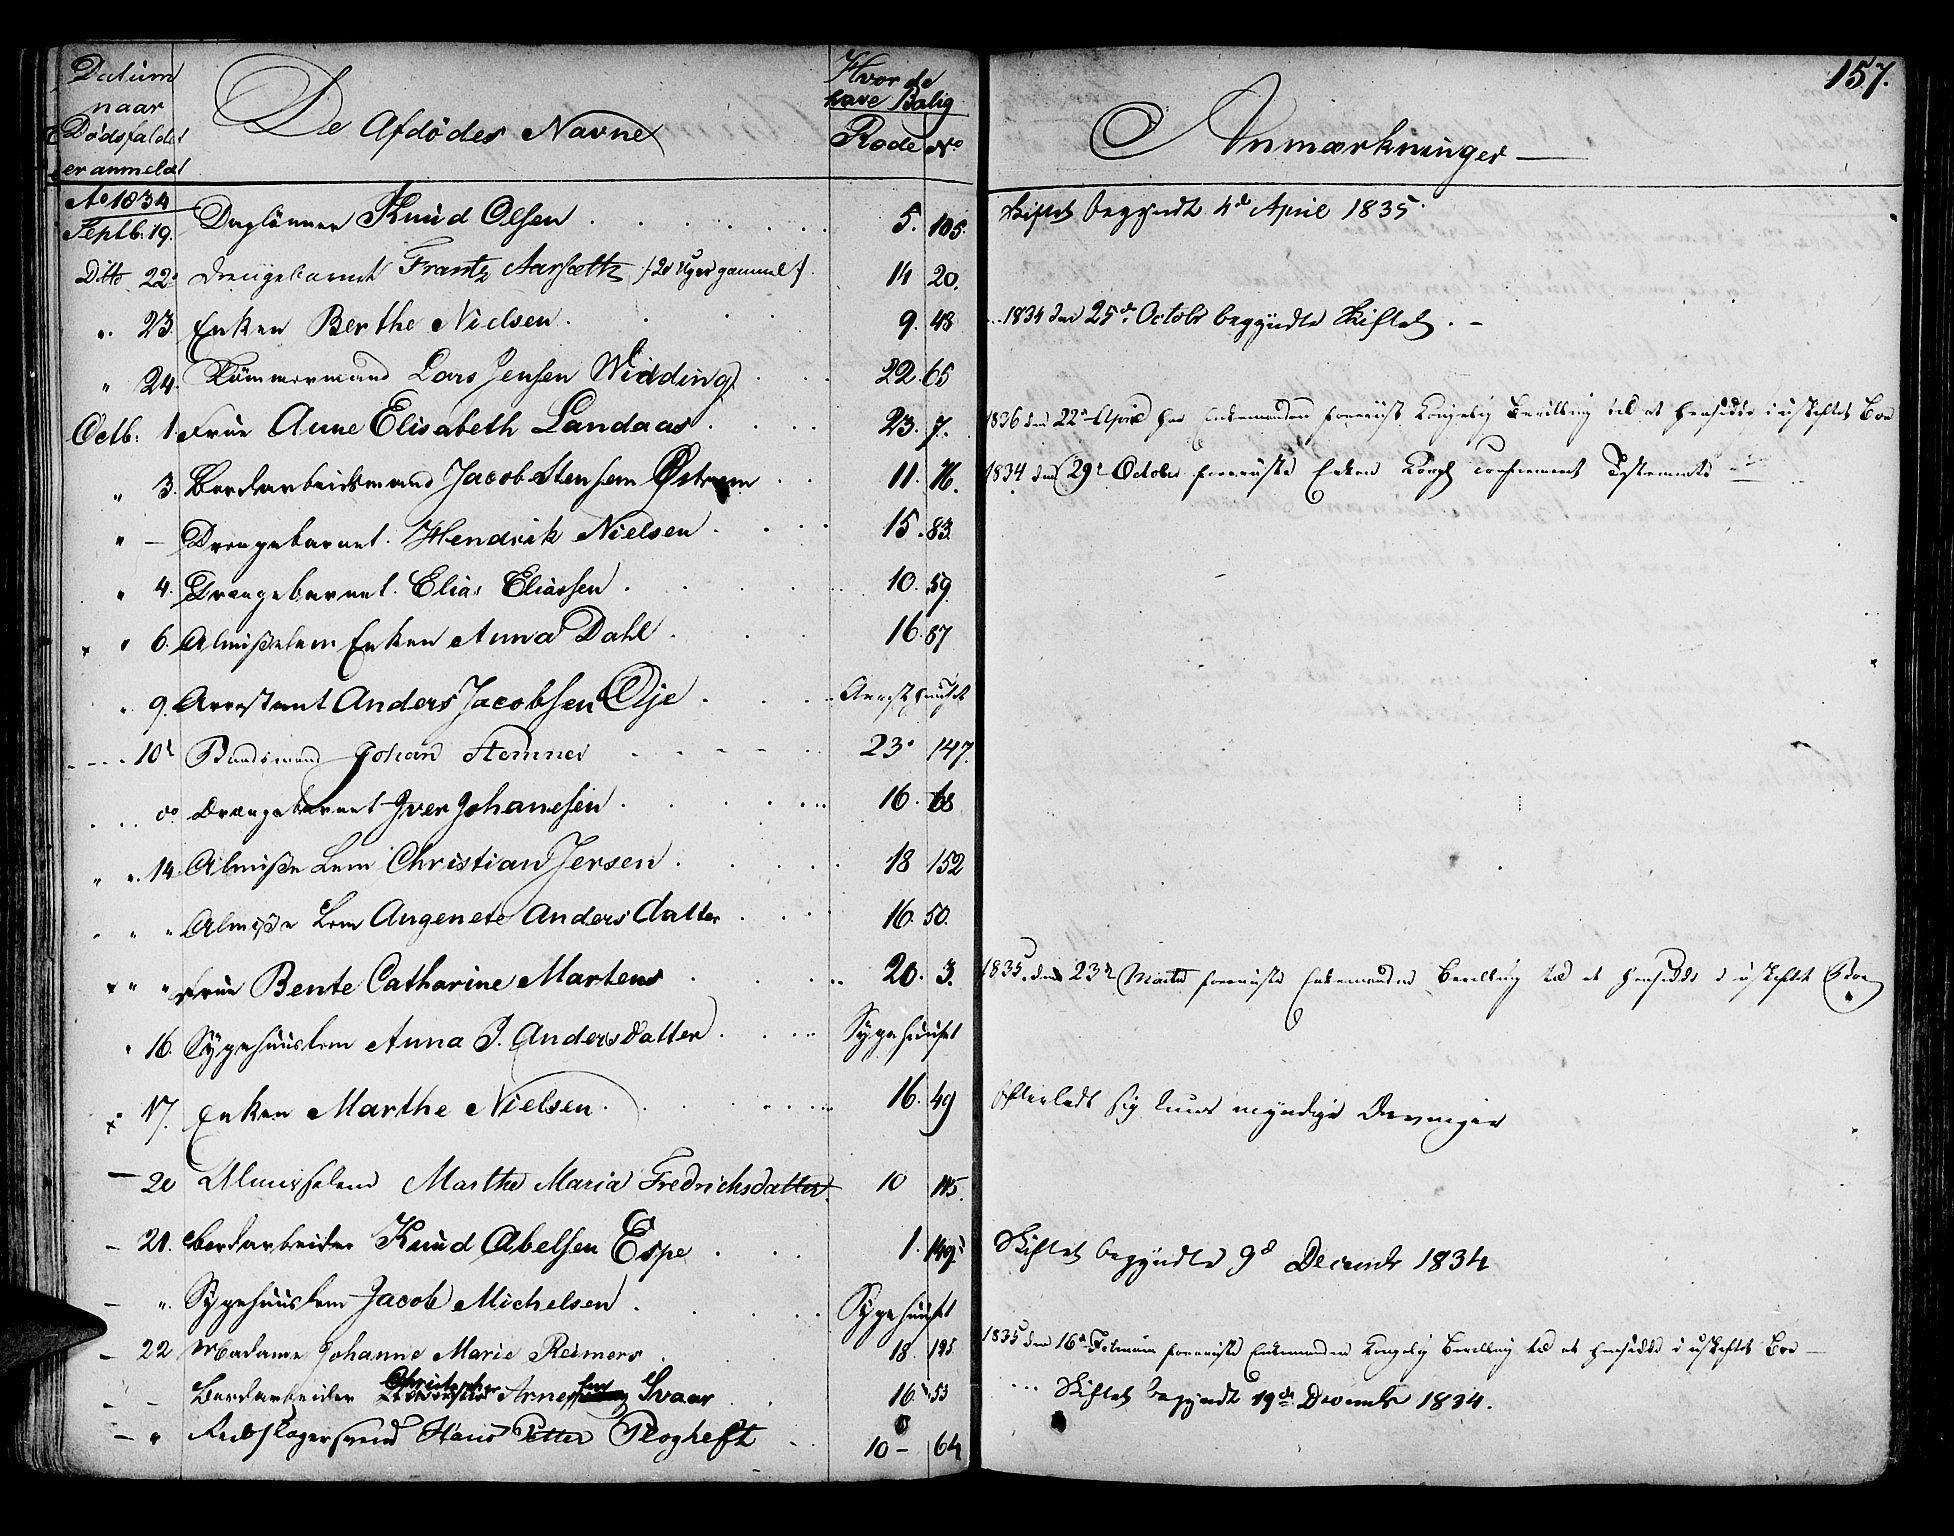 157.
Datum naar Dødsfaldet er anmeldt
De Afdødes Navne
Hvor de have Bolig
Rode No
Anmærkninger
Ao 1834
Septb. 19. Daglönner Knud Olsen 5. 105. Skiftet begyndt 4de April 1835.
Ditto 22 Drengebarnet Frantz Aarsæth /20 Uger gammel/. 14 20.
" 23. Enken Berthe Nielsen 9. 48 1834 den 25de Octobr begyndte Skiftet.
" 24. Tömmermand Lars Jensen Widding 22. 65
Octb: 1 Frue Anne Elisabeth Landaas 23. 7. 1836 den 22de April har Enkemanden foreviist Kongelig Bevilling til at hensidde i uskiftet Boe
" 3. Bordarbeidsmand Jacob Stensem Østrem 11. 76. 1834 den 29de Octobr foreviiste Enken Kongl confirmeret Testamente
" — Drengebarnet Hendrik Nielsen 15. 83.
" 4. Drengebarnet Elias Eliassen 10. 59.
" 6. Almisselem Enken Anna Dahl 16. 87
" 9. Arrestant Anders Jacobsen Øje Arresthuuset
10de Baadsmand Johan Stemner 23. 147.
do Drengebarnet Iver Johannesen 16. 68
" 14 Almisse Lem Christian Jersen 18 152
" " Almisse Lem Angenete Andersdatter 16. 50.
" " Frue Bente Catharine Martens 20. 3. 1835. den 23de Martii foreviiste Enkemanden Bevilling til at hensidde i uskiftet Boe
" 16. Sygehuuslem Anna J. Andersdatter Sygehuuset
17. Enken Marthe Nielsen 16. 49 Efterladt sig kuns myndige Arvinger
— 20 Almisselem Marthe Maria Fredrichsdatter 10 115.
— 21. Bordarbeider Knud Abelsen Espe 1. 149 Skiftet begyndte 9d Decembr 1834
— " Sygehuuslem Jacob Michelsen Sygehuuset
— 22 Madame Johanne Marie Reimers 18. 125 1835 den 16de Februar foreviste Enkemanden Kongelig Bevilling til at hensidde i uskiftet Boe
— Bordarbeider Christopher Arnessen Svaar 16. 53 Skiftet begyndt 19de Decembr 1834.
— " Rebslagersvend Hans Petter Plogheft 10 — 64